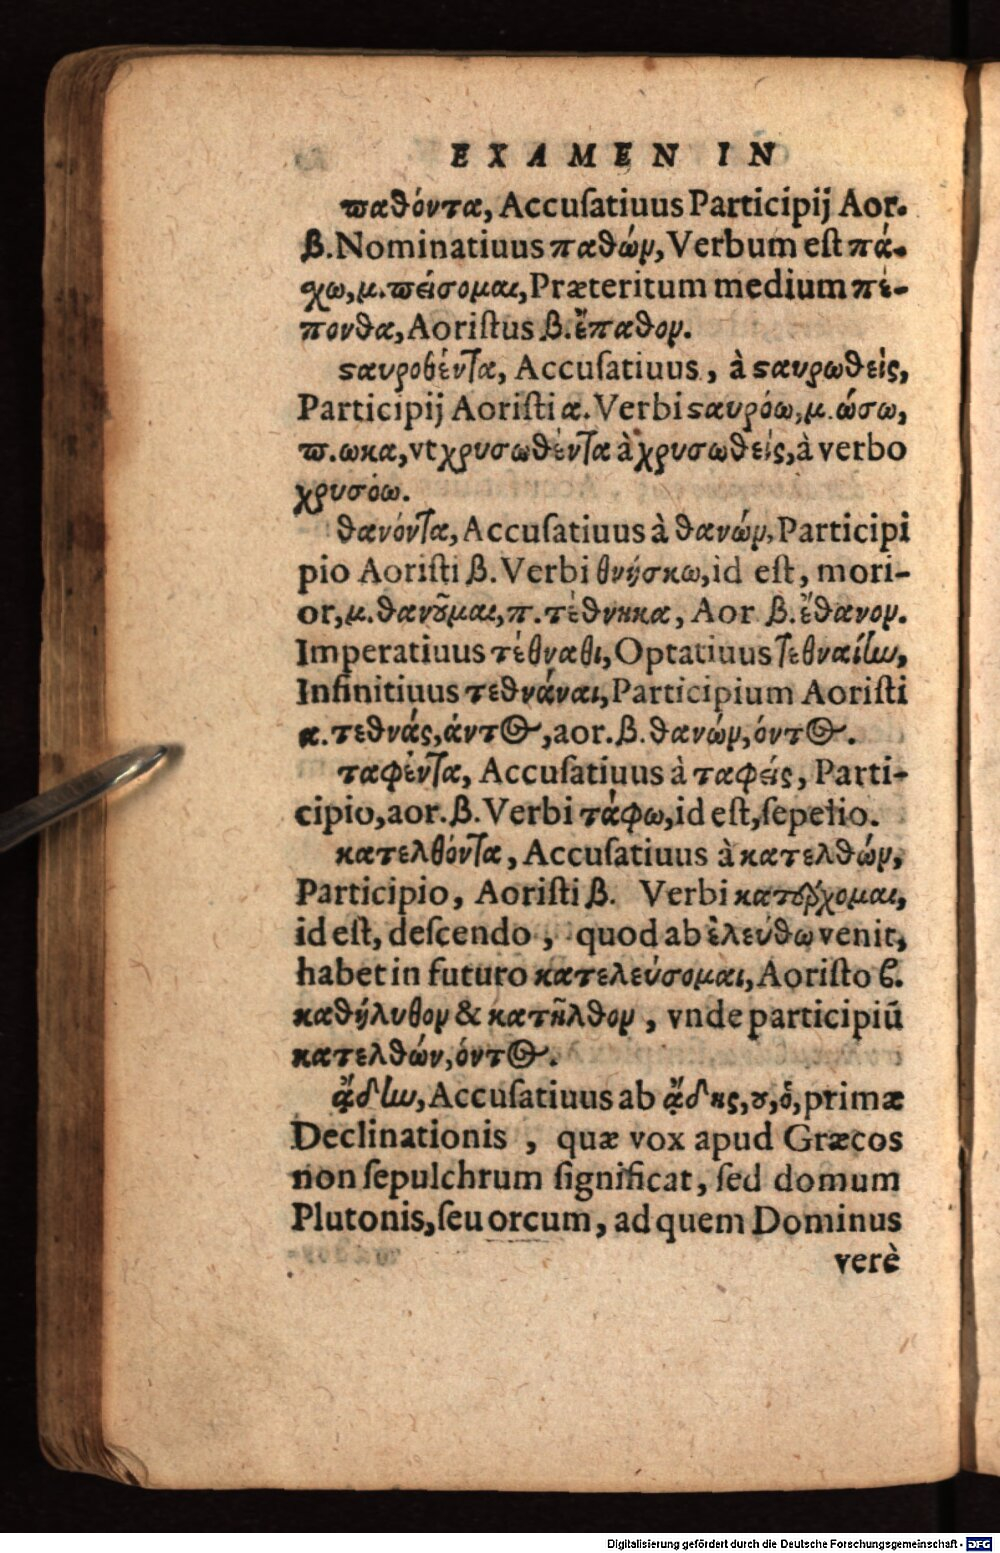 EXAMEN IN
παθόντα, Accuſatiuus Participij Aor.
β. Nominatiuus παθών, Verbum eſt πά-
χω, μ. πείσομαι, Præteritum medium πέ-
πονθα, Aoriſtus β. ἔπαθον.
ϛαυροθέντα, Accuſatiuus, à ϛαυρωθείς,
Participij Aoriſti α. Verbi ϛαυρόω, μ. ώσω,
π. ωκα, vt χρυσωθέντα à χρυσωθείς, à verbo
χρυσόω.
θανόντα, Accuſatiuus à θανών, Participi
pio Aoriſti β. Verbi θνήσκω, id eſt, mori-
or, μ. θανοῦμαι, π. τέθνηκα, Aor β. ἔθανον.
Imperatiuus τέθναθι, Optatiuus τεθναίην,
Infinitiuus τεθνάναι, Participium Aoriſti
α. τεθνάς, άντος, aor. β. θανών, όντος.
ταφέντα, Accuſatiuus à ταφείς, Parti-
cipio, aor. β. Verbi τάφω, id eſt, ſepelio.
κατελθόντα, Accuſatiuus à κατελθών,
Participio, Aoriſti β. Verbi κατέρχομαι,
id eſt, deſcendo, quod ab ἐλεύθω venit,
habet in futuro κατελεύσομαι, Aoriſto ϐ.
καθήλυθον & κατῆλθον, vnde participiũ
κατελθών, όντος.
ᾅδην, Accuſatiuus ab ᾅδης, ου, ὁ, primæ
Declinationis, quæ vox apud Græcos
non ſepulchrum ſignificat, ſed domum
Plutonis, ſeu orcum, ad quem Dominus
verè
Digitalisierung gefördert durch die Deutsche Forschungsgemeinschaft - DFG